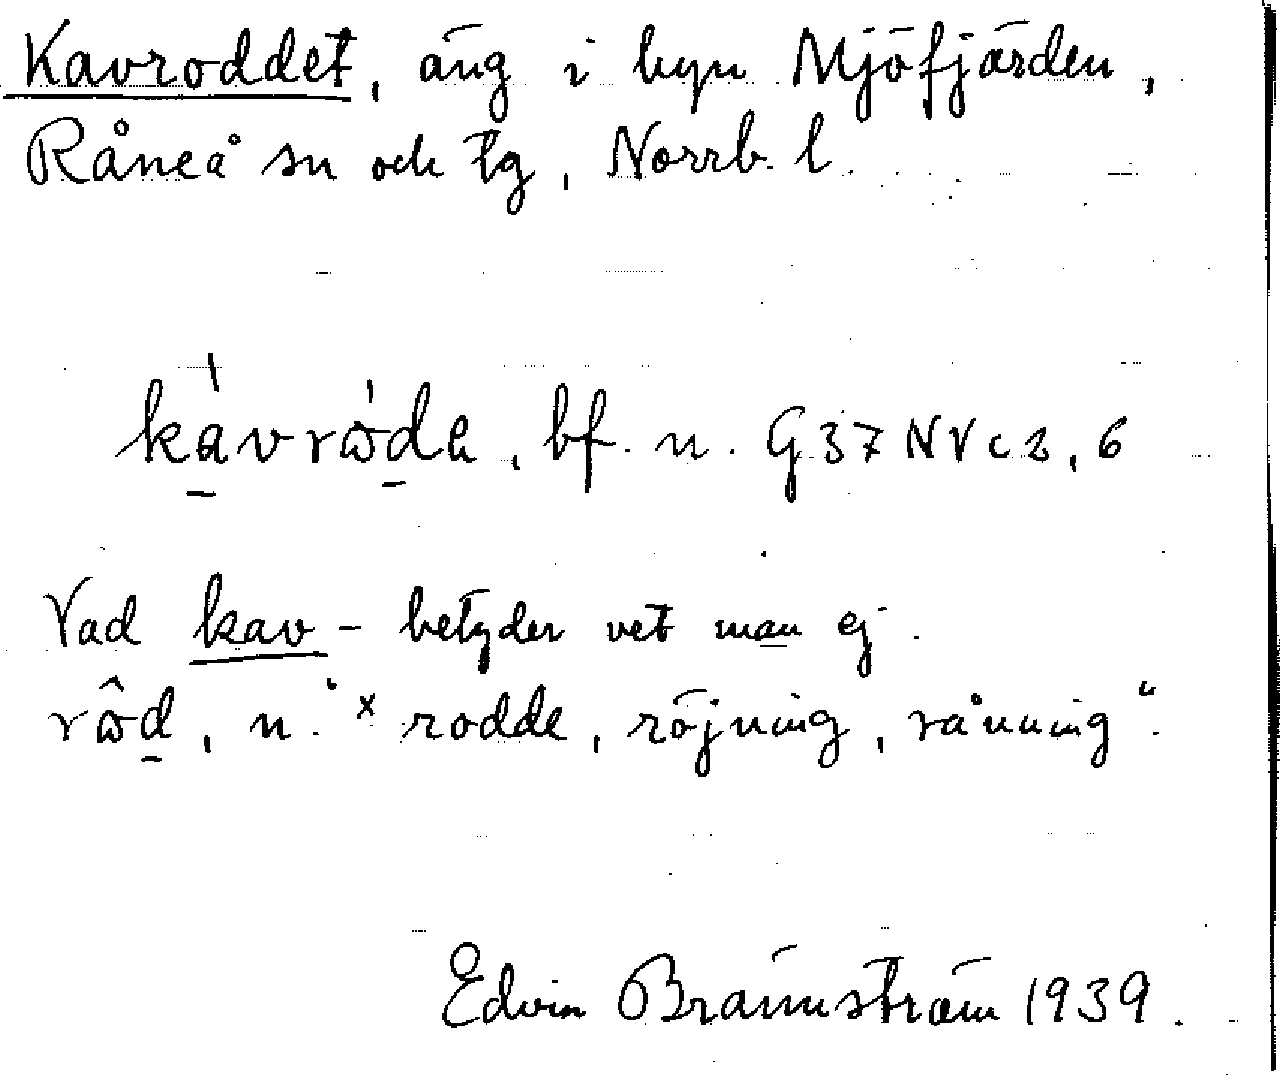 Kavroddet, äng i byn Mjöfjärden,
Råneå sn och tg, Norrb. l.
kàvrὼde, bf. n. G 37 NV c 2, 6
Vad kav- betyder vet man ej.
rω̂d, n. "x rodde, röjning, rånning".
Edvin Brännström 1939.